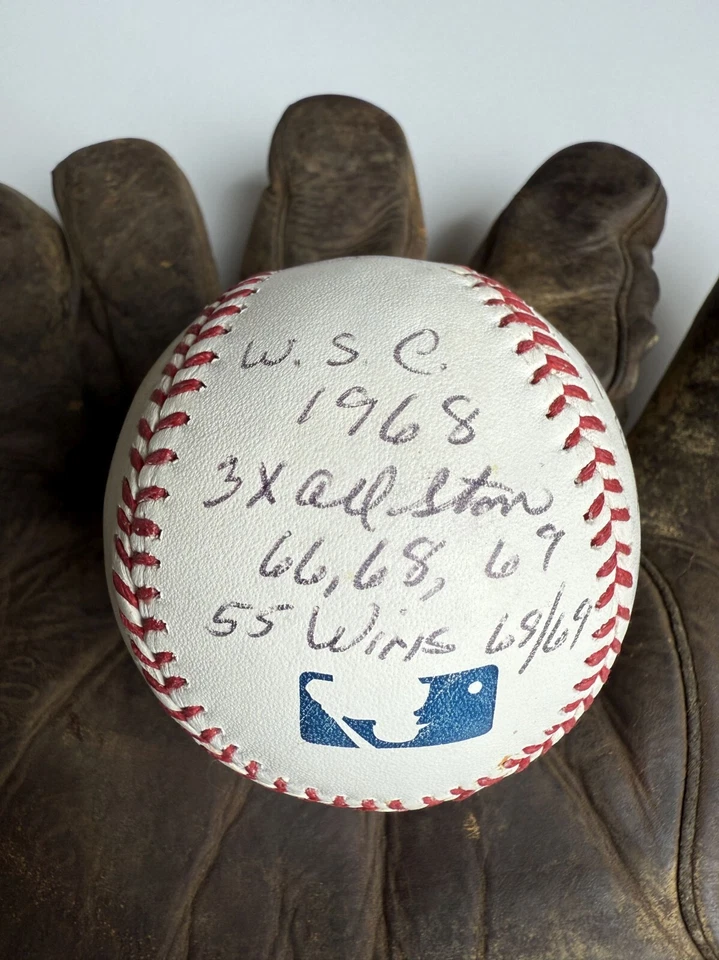 W. S. C.
1968
3X All Star
66, 68, 69
55 Wins 68/69